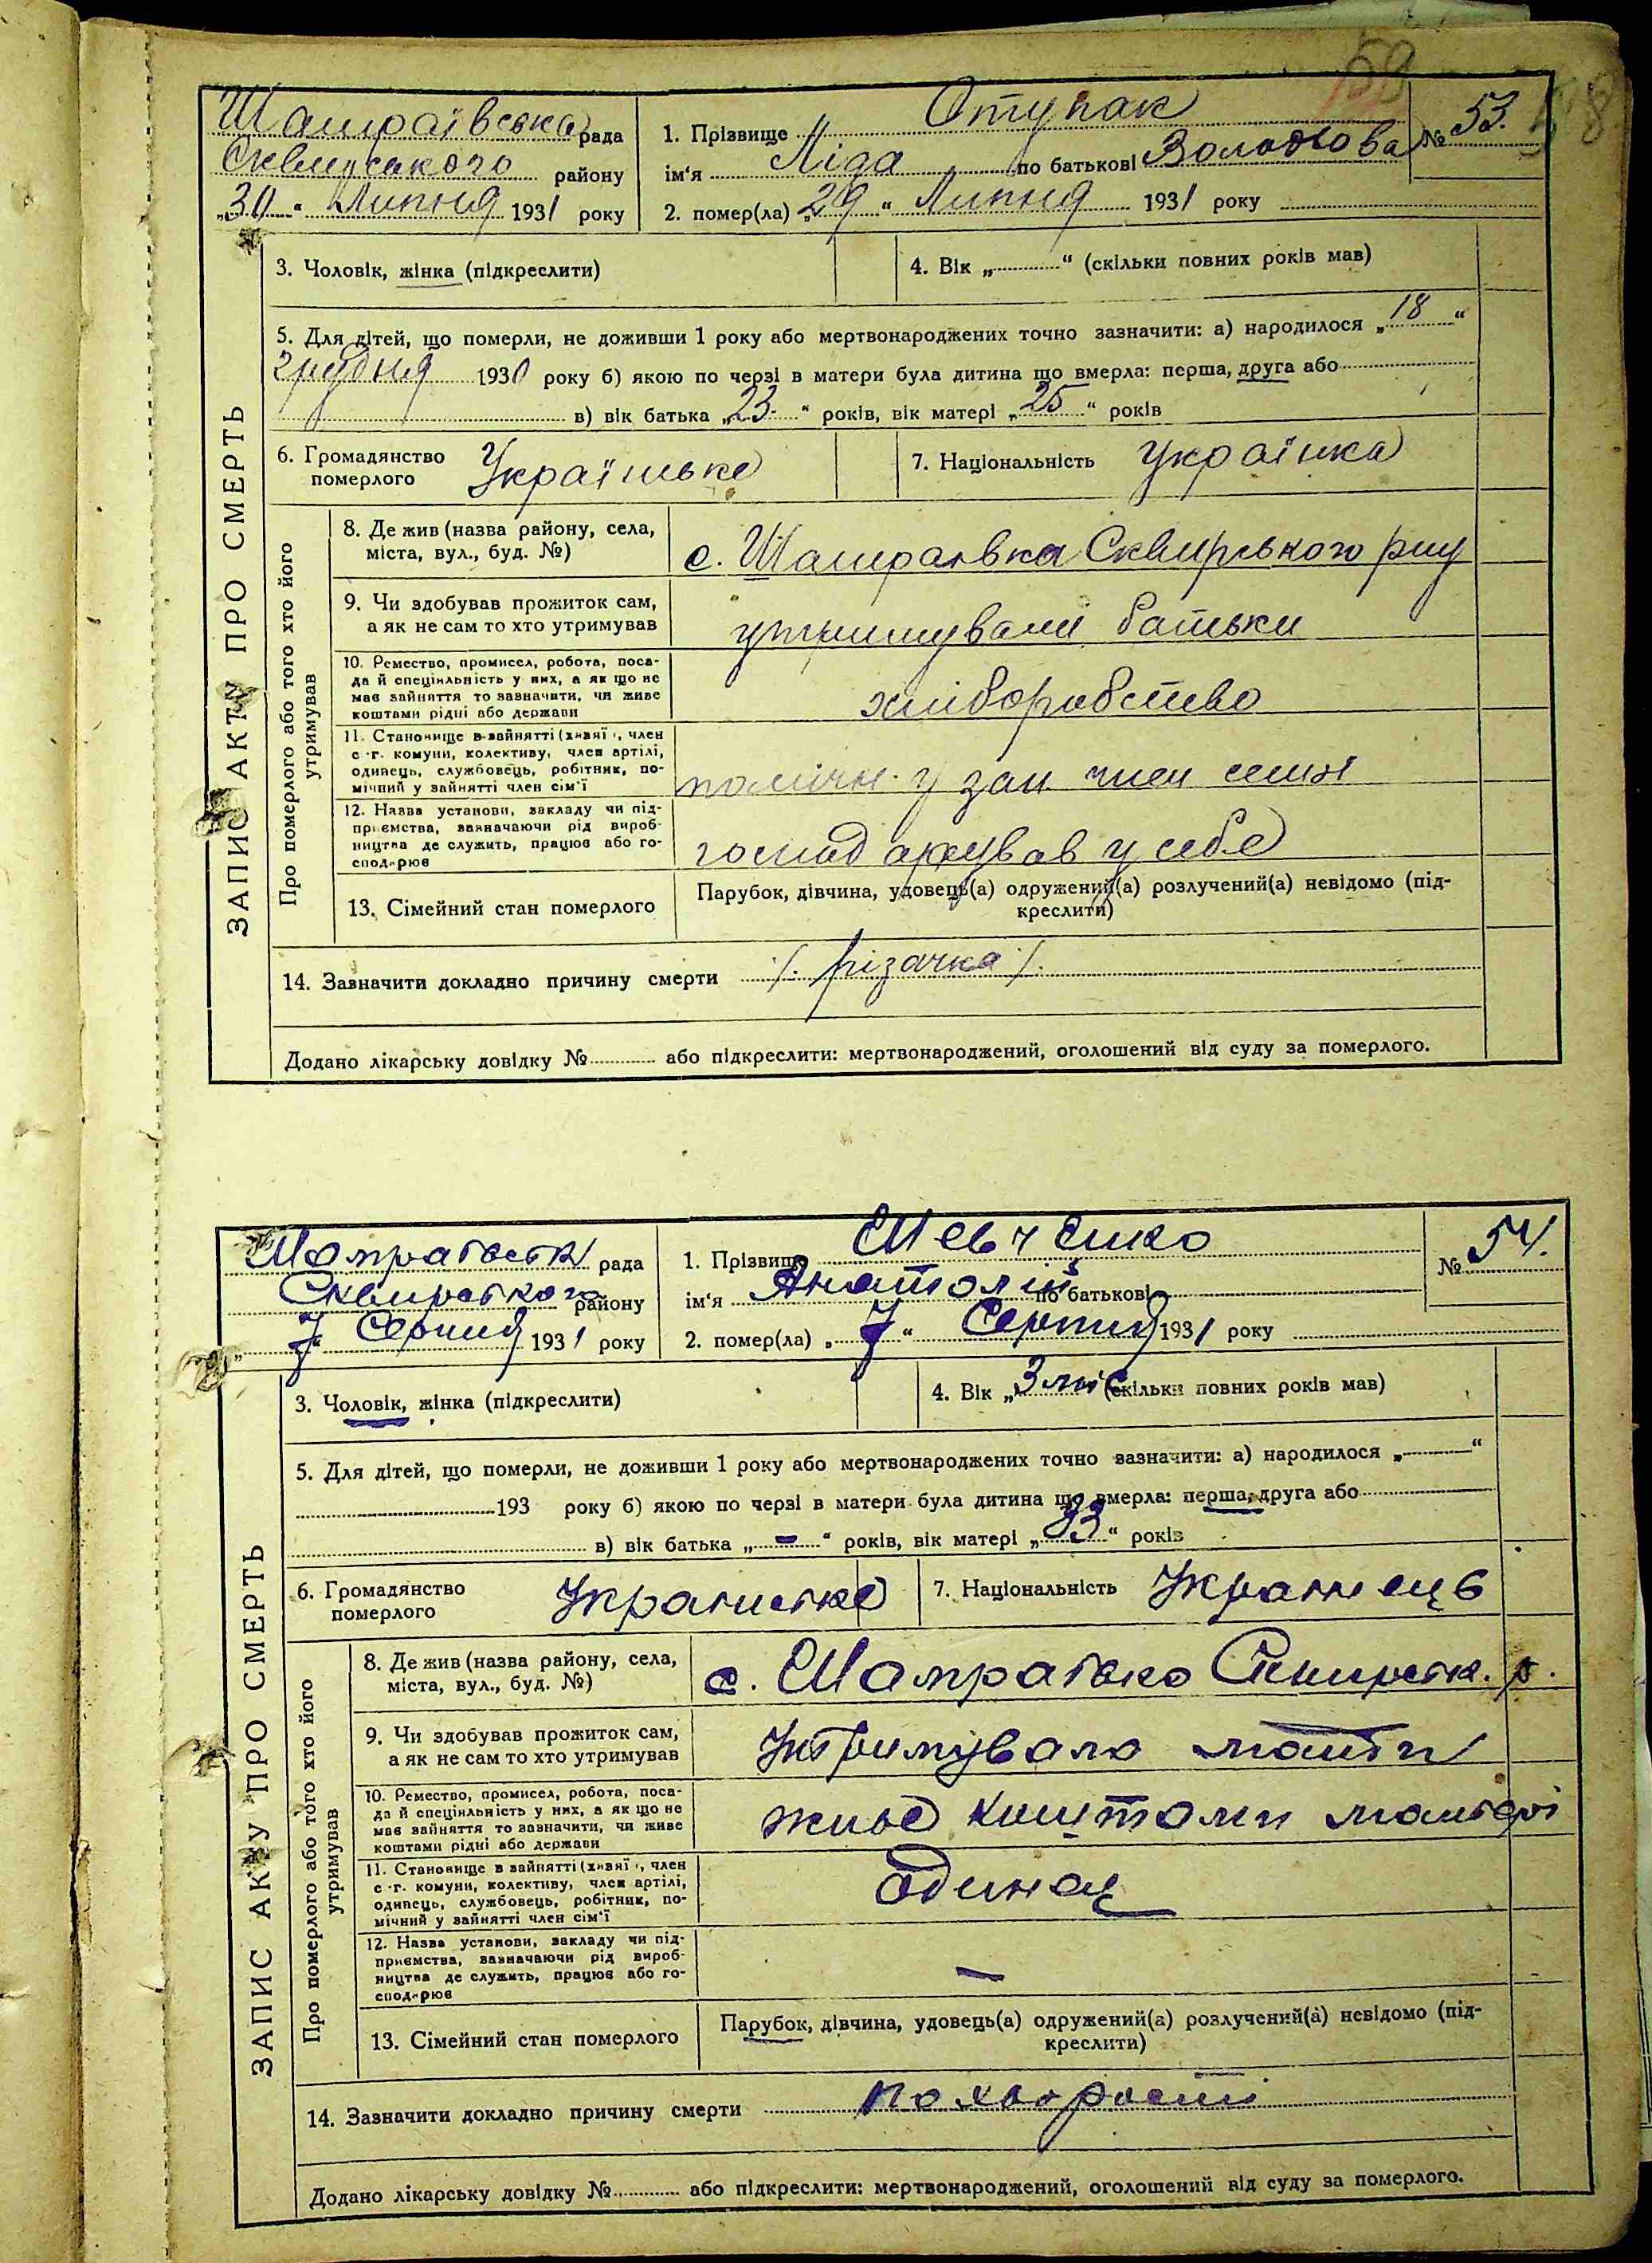 59
58
Шамраївська рада
Сквирського району
„30“ Липня 1931 року
1. Прізвище Ступак
№ 53.
ім‘я Ліда по батькові
2. помер(ла) „29“ Липня 1931 року
ЗАПИС АКТУ ПРО СМЕРТЬ
3. Чоловік, жінка (підкреслити)
4. Вік „ “ (скільки повних років мав)
5. Для дітей, що померли, не доживши 1 року або мертвонароджених точно зазначити: а) народилося „18“
грудня 1930 року б) якою по черзі в матери була дитина що вмерла: перша, друга або
в) вік батька „23“ років, вік матері „25“ років
6. Громадянство
померлого
Українське
7. Національність Українка
Про померлого або того хто його
утримував
8. Де жив (назва району, села,
міста, вул., буд. №)
с. Шамраївка Сквирського р-ну
9. Чи здобував прожиток сам,
а як не сам то хто утримував
утримували батьки
10. Ремество, промисел, робота, поса-
да й спеціяльність у них, а як що не
має зайняття то зазначити, чи живе
коштами рідні або держави
хліборобство
11. Становище в зайнятті (хазяї, член
с.-г. комуни, колективу, член артілі,
одинець, службовець, робітник, по-
мічний у зайнятті член сім‘ї
помічн. у зан. член семї
12. Назва установи, закладу чи під-
приємства, зазначаючи рід вироб-
ництва де служить, працює або го-
сподарює
господарував у себе
13. Сімейний стан померлого
Парубок, дівчина, удовець(а) одружений(а) розлучений(а) невідомо (під-
креслити)
14. Зазначити докладно причину смерти /. різачка /.
Додано лікарську довідку № або підкреслити: мертвонароджений, оголошений від суду за померлого.
Шамраївськ рада
Сквирського району
„7“ Серпня 1931 року
1. Прізвище Шевченко
№ 54.
ім‘я Анатолій по батькові
2. помер(ла) „7“ Серпня 1931 року
ЗАПИС АКТУ ПРО СМЕРТЬ
3. Чоловік, жінка (підкреслити)
4. Вік „3 міс (скільки повних років мав)
5. Для дітей, що померли, не доживши 1 року або мертвонароджених точно зазначити: а) народилося „ “
193 року б) якою по черзі в матери була дитина що вмерла: перша, друга або
в) вік батька „-“ років, вік матері „33“ років
6. Громадянство
померлого
Українське
7. Національність Українець
Про померлого або того хто його
утримував
8. Де жив (назва району, села,
міста, вул., буд. №)
с. Шамраївка Сквирськ. р.
9. Чи здобував прожиток сам,
а як не сам то хто утримував
утримувала мати
10. Ремество, промисел, робота, поса-
да й спеціяльність у них, а як що не
має зайняття то зазначити, чи живе
коштами рідні або держави
живе коштами матері
11. Становище в зайнятті (хазяї, член
с.-г. комуни, колективу, член артілі,
одинець, службовець, робітник, по-
мічний у зайнятті член сім‘ї
одинец
12. Назва установи, закладу чи під-
приємства, зазначаючи рід вироб-
ництва де служить, працює або го-
сподарює
—
13. Сімейний стан померлого
Парубок, дівчина, удовець(а) одружений(а) розлучений(а) невідомо (під-
креслити)
14. Зазначити докладно причину смерти
Додано лікарську довідку № або підкреслити: мертвонароджений, оголошений від суду за померлого.